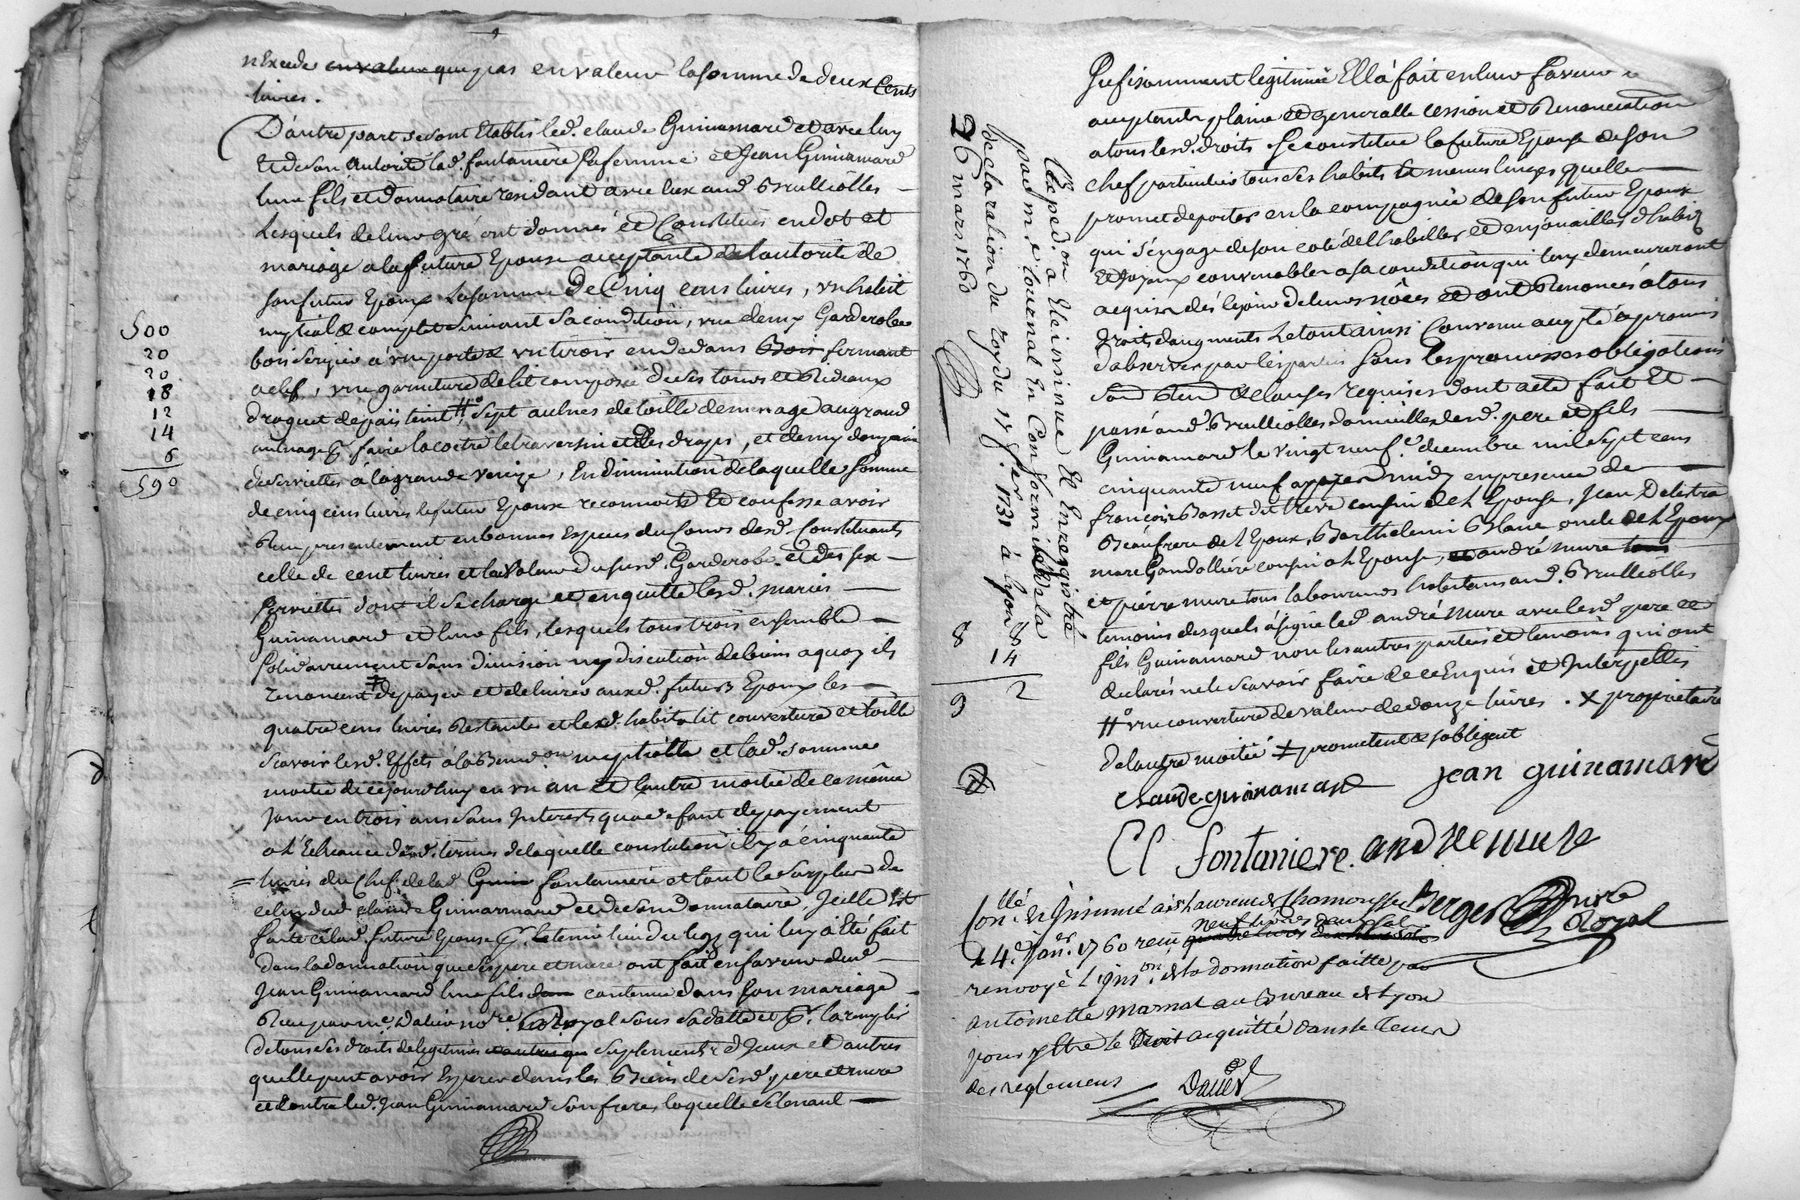 n'Excede en valeur que pas en valeur la somme de deux Cents
livres.
D'autre part se sont Etablis led. claude Guinamard et avec luy
et de son autorité lad. fontaniere sa femme et Jean Guinamard
leur fils et donnataire residant avec eux aud. Brullioles
Lesquels de leur gré ont donnés et Constitués en dot et
mariage a la future Epouse acceptante de l'autorité de
son futur Epoux La somme De Cinq cens livres, un habit
complet suivant sa condition, une demy Garderobe
bois serizier a une porte & un tiroir en dedans Bois fermant
a clef, une garniture de lit composée de ses tours et Rideaux
droguet de païs teint, # sept aulnes de toille de menage au grand
aulnage p. faire la coetre le traversin et des draps, et demy douzaine
de serviettes a la grande Venize, En diminution de laquelle somme
de cinq cens livres le futur Epoux reconnoit et confesse avoir
Reçu presentement en bonnes Especes du Cours desd. Constituants
celle de cent livres et la valeur du susd. Garderobe et des six
serviettes dont il se charge et en quitte lesd. mariés
Guinamard et leur fils, lesquels tous trois ensemble
solidairement sans division ny discution de biens a quoy ils
renoncent ‡ de payer et delivrer auxd. futurs Epoux les
quatre cens livres Restante et lesd. habit lit couverture et toille
scavoir lesd. Effets a la Bened.on nuptialle et lad. somme
moitié de cejourdhuy en un an et l'autre moitié de ce même
jour en trois ans sans Interests qua defaut de payement
a l'Echeance desd. termes de laquelle constitution il y a cinquante
livres du Chef de lad. Guin fontaniere et tout le surplus de
celuy dud. claude Guinamard et de son donnataire, Icelle Est
faite a lad. future Epouse p. lui tenir lieu du legs qui luy a été fait
dans la donnation que ses pere et mere ont fait en faveur dud.
Jean Guinamard leur fils dans contenue dans son mariage
Reçu par me. Dalier no.re Royal sous sa datte et p. la remplir
de tous ses droits de legitimes et autres que suplement d'Iceux et d'autres
quelle peut avoir Esperer dans les Biens de sesd. pere et mere
et contre led. Jean Guinamard son frere, laquelle se tenant
500
20
20
18
12
14
6
590
Vexpedon a Eté insinué Et Enregistré
par me. tournal En Conformité de la
declaration du roy du 17 fer. 1731 à lyon le
26 mars 1760
8 8
14
9 2
sufisamment legitimée Ell'à fait en leur faveur
acceptants plaine et generalle cession et Renonciation
a tous lesd. droits. Se constitue la future Epouse de son
chef particulier tous ses habits et menus linges quelle
promet de porter en la compagnie de son futur Epoux
qui s'engage de son coté de l'habiller et enjouailler d'habits
et joyaux convenables a sa condition qui luy demeureront
acquis dès le jour de leurs nôces et ont Renoncés a tous
droits d'augments Le tout ainsi Convenu accepté et promis
d'observer par les parties sous les promisses obligations
clauses requises dont acte fait Et
passé aud. Brullioles domicille desd. pere et fils
Guinamard le vingt neuf.e decembre mil sept cens
cinquante neuf apprez midy en presence de
francois Basset dit treve cousin de l'Epouse, Jean Delestra
Beaufrere de l'Epoux, Barthelemi Blanc oncle de l'Epoux
marc Gandolliere cousin a l'Epouse, et andré mure tous
et pierre mure tous laboureurs habitans aud. Brullioles
temoins desquels a signé led. andré Mure avec lesd. pere et
fils Guinamard non les autres parties et temoins qui ont
declarés ne le scavoir faire de ce Enquis et Interpellés
# une couverture de valeur de douze livres. X proprietaire
de l'autre moitié ‡ promettent & s'obligent
claude guinamard jean guinamard
Cl fontaniere. andre mure
Berger nore Royal
Con.llé & Insinué a st Laurent de Chamousset
le 4.e Jan.er 1760 reçu neuf livres deux sols
renvoyé l'Ins.on de la donnation faitte par
antoinette mamat au Bureau de Lyon
pour y Etre le Droit acquitté dans le tems
des reglemens Dauer